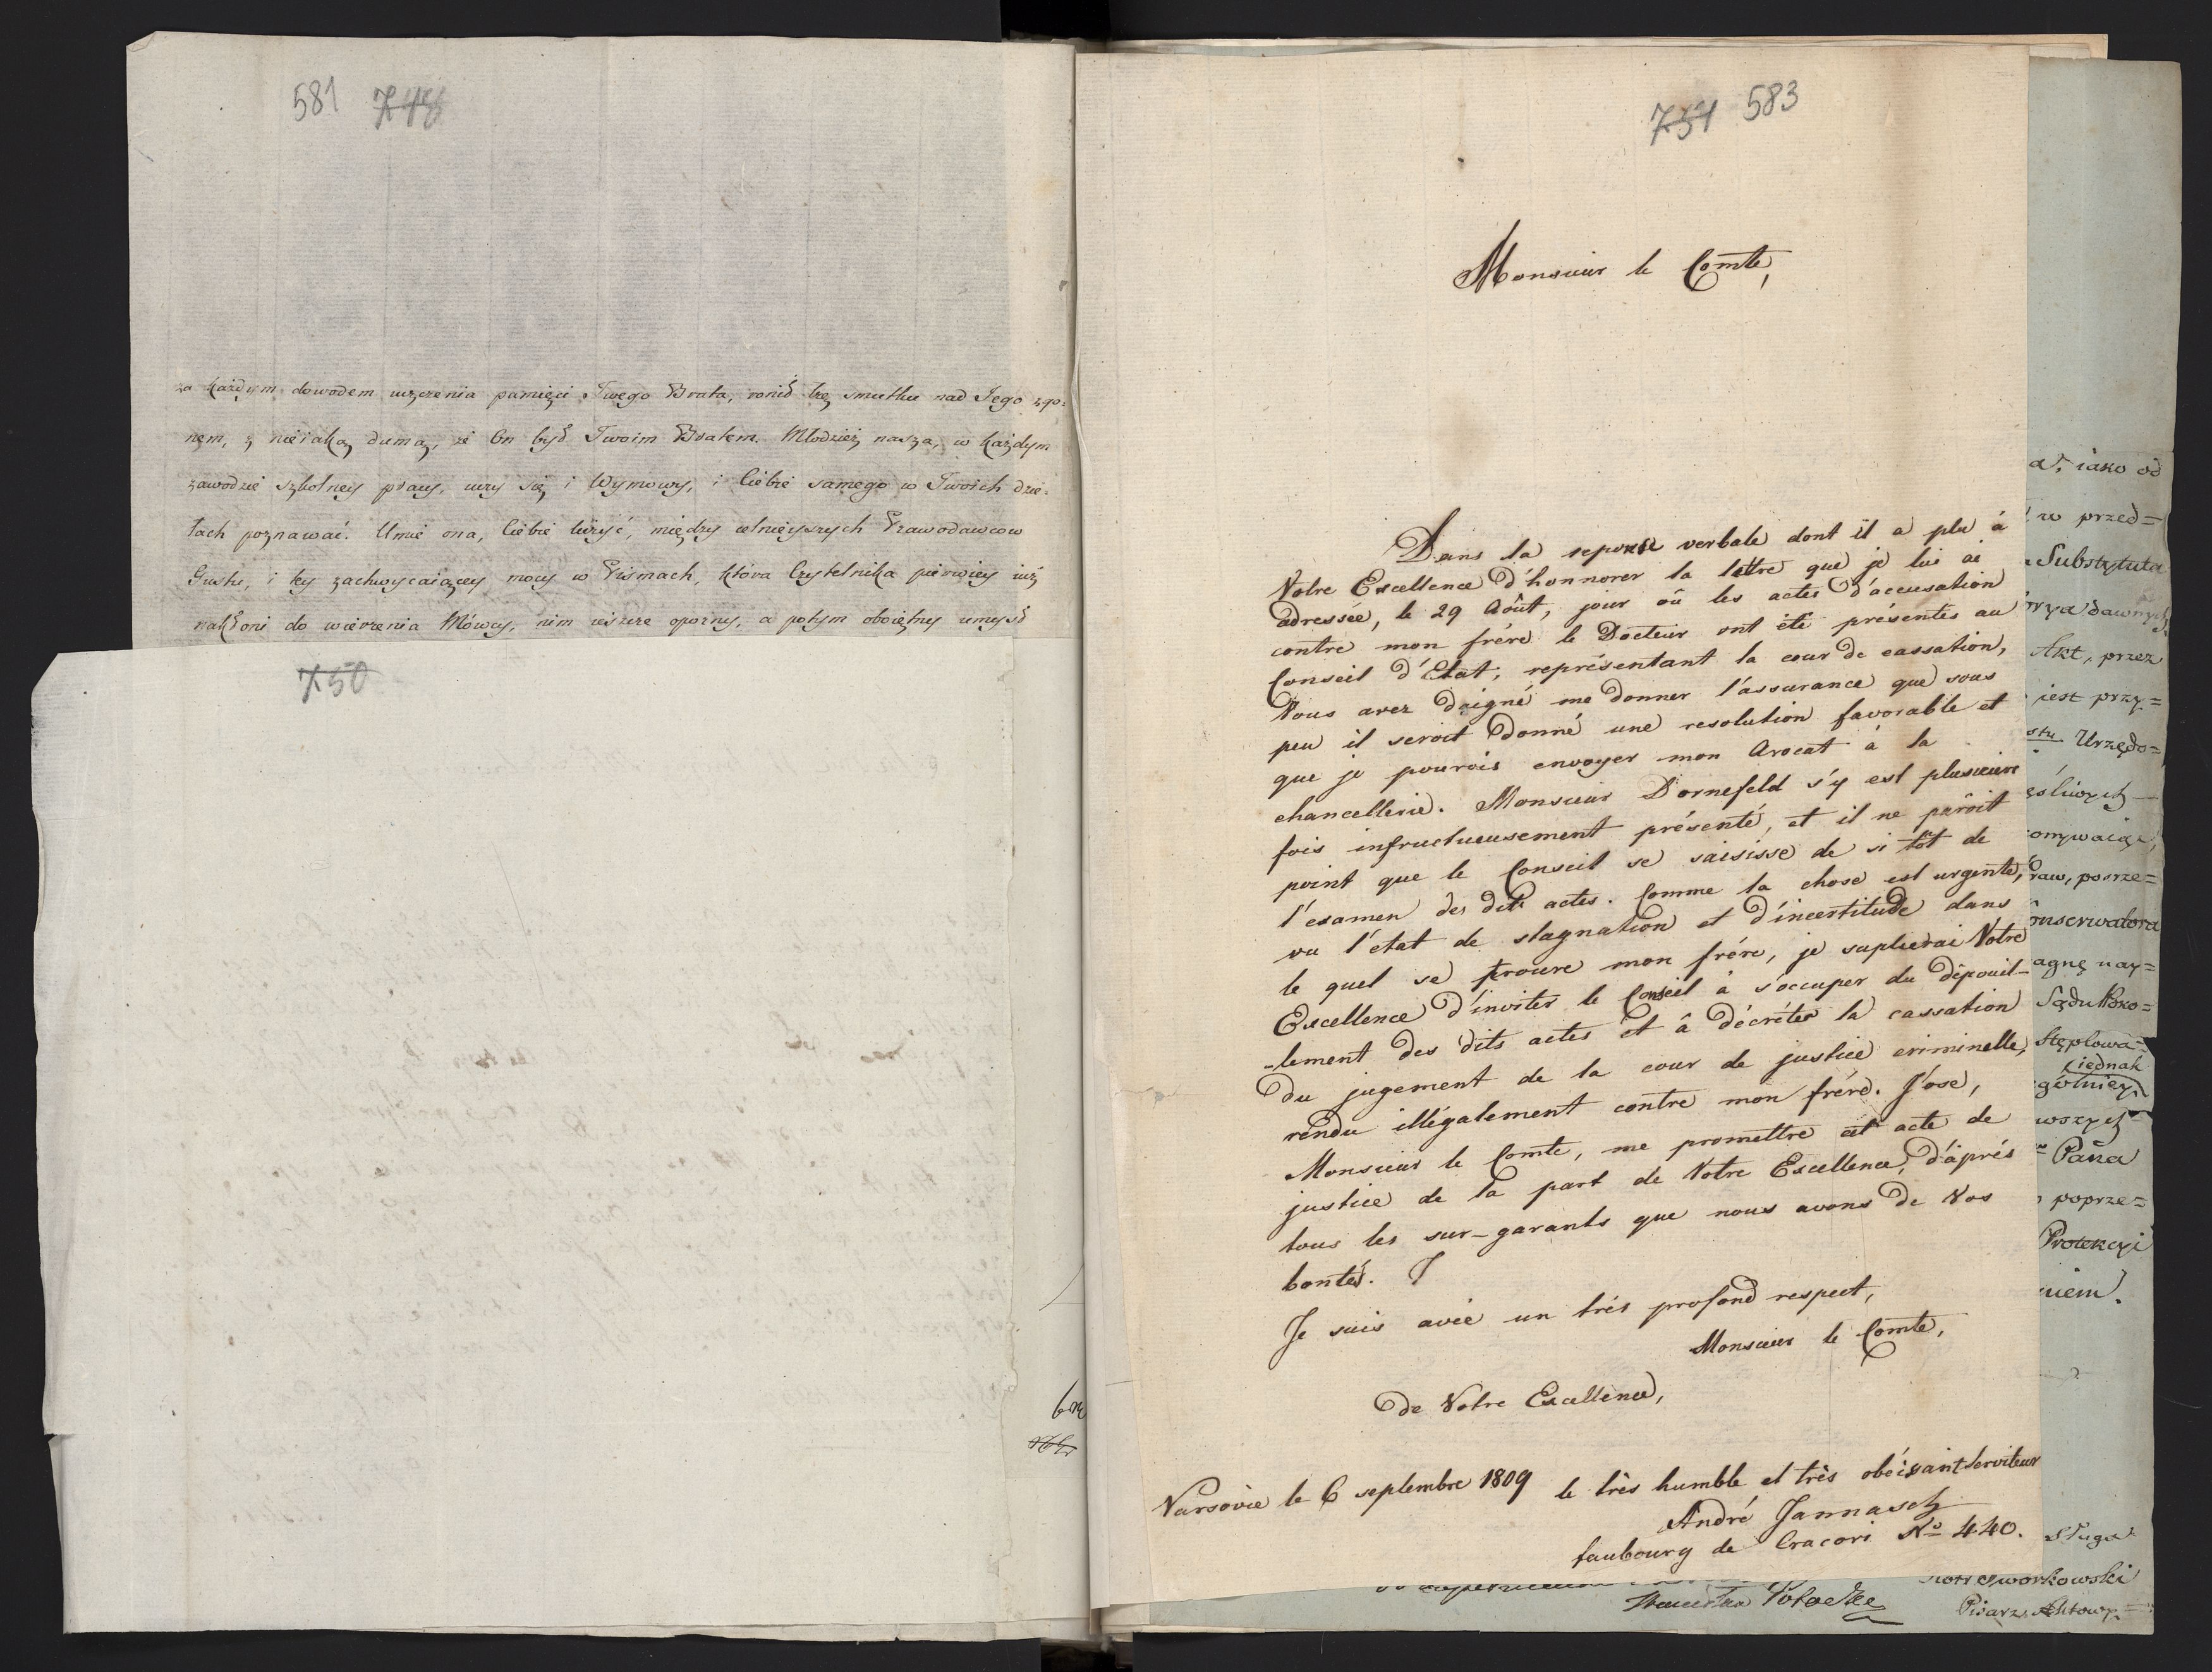 581 748
za każdym dowodem uczczenia pamięci Twego Brata, ronić łzę smutku nad Jego zgo=
nem, z nieiaką dumą, że On był Twoim Bratem. Młodzież nasza, w każdym
zawodzie szkolney pracy, uczy się i Wymowy, i Ciebie samego w Twoich dzie=
łach poznawać. Umie ona, Ciebie liczyć, między celnieyszych Prawodawcow
Gustu, i tey zachwycaiącey mocy w Pismach, która Czytelnika pierwiey iuż
nakłoni do wierzenia Mówcy, nim ieszcze oporny, a potym oboiętny umysł
750
751 583
Monsieur le Comte,
Dans la reponse verbale dont il a plu à
Votre Excellence d'honnorer la lettre que je lui ai
adressée, le 29 Aôut, jour oû les actes d'accusation
contre mon frére le Docteur ont été présentés au
Conseil d'Etat, représentant la cour de cassation,
Vous avez daigné me donner l'assurance que sous
peu il seroit donné une resolution favorable et
que je pourois envoyer mon Avocat à la
chancellerie. Monsieur Dornefeld s'y est plusieurs
fois infructueusement présenté, et il ne parôit
point que le Conseil se saisisse de si tôt de
l'examen des dits actes. Comme la chose est urgente,
vu l'etat de stagnation et d'incertitude dans
le quel se trouve mon frére, je suplierai Vôtre
Excellence d'inviter le Conseil à s'occuper du dépouil-
-lement des dits actes et à décréter la cassation
du jugement de la cour de justice criminelle,
rendu illégalement contre mon frére. J'ose,
Monsieur le Comte, me promettre cet acte de
justice de la part de Votre Excellence, d'áprés
tous les sur-garants que nous avons de Vos
bontés. J
Je suis avec un trés profond respect,
Monsieur le Comte,
de Votre Excellence,
Varsovie le 6 septembre 1809 le très humble et très obéissant serviteur
André Jannasch
faubourg de Cracovi No 440.
iako od
w przed=
Substytuta
dawnych
Akt, przez
iest przy=
Urzędo=
Konserwatora
Sądu Poko=
Stęplowa=
iednak
Pana
poprze=
Protekcyi
Sługa
Pisarz Aktowy